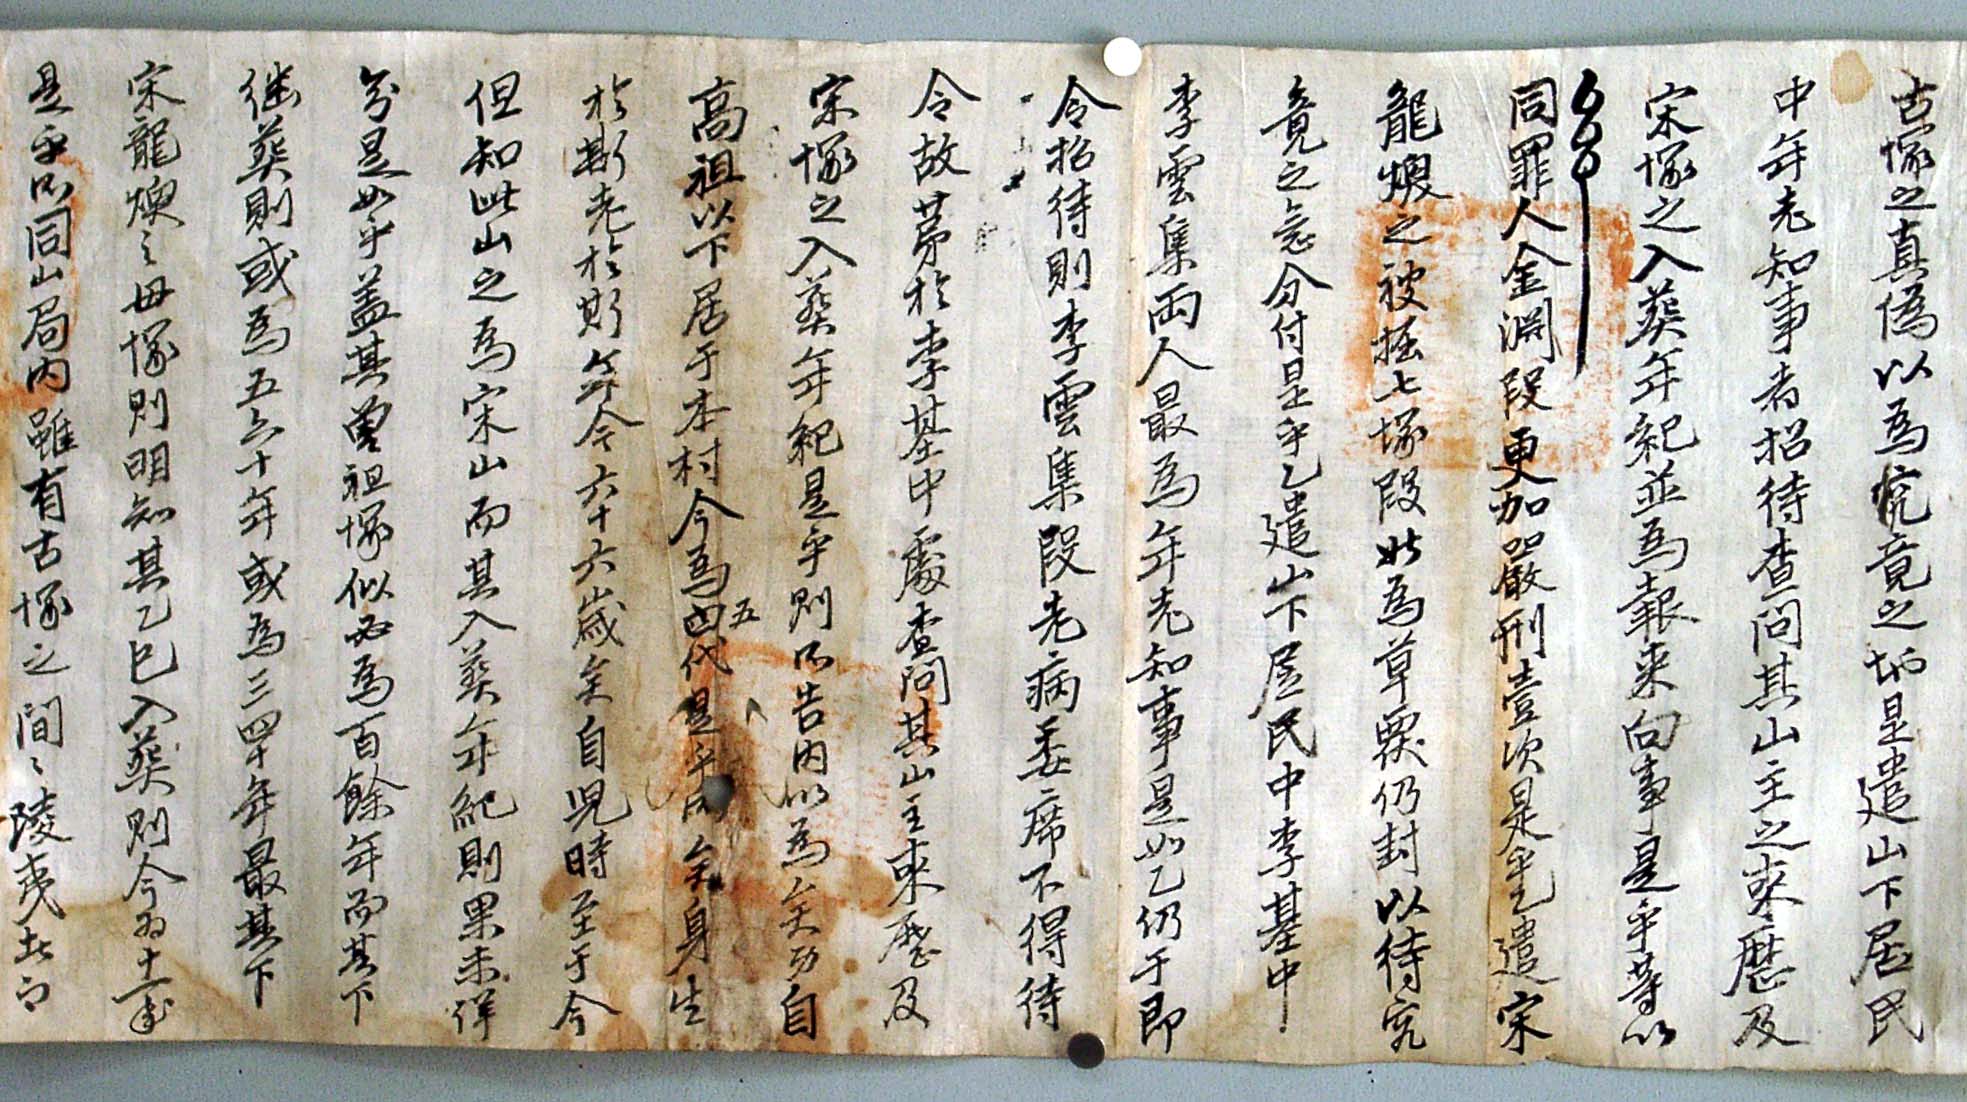 古塚之真僞以爲究竟之地是遣山下居民
中年老知事者招待査問其山主之來歷及
宋塚之入葬年紀並爲報來向事是乎等以
同罪人金淵段更加嚴刑壹次是乎乙遣宋
龍煥之被掘七塚段此爲草覈仍封以待究
竟之意分付是乎乙遣山下居民中李基中
李雲集両人最爲年老知事是如乙仍于即
令招待則李雲集段老病委席不得待
令故茅於李基中處査問其山主來歷及
宋塚之入葬年紀是乎則所告內以爲矣身自
高祖以下居于本村今爲五代是乎所矣身生
於斯老於斯年今六十六歲矣自児時至于今
但知此山之爲宋山而其入葬年紀則果未詳
兮是如乎盖其曽祖塚似必爲百餘年而其下
継葬則或爲五六十年或爲三四十年最其下
宋龍煥之母塚則明知其乙巳入葬則今爲十一年
是乎所同山局內雖有古塚之間〻陵夷此